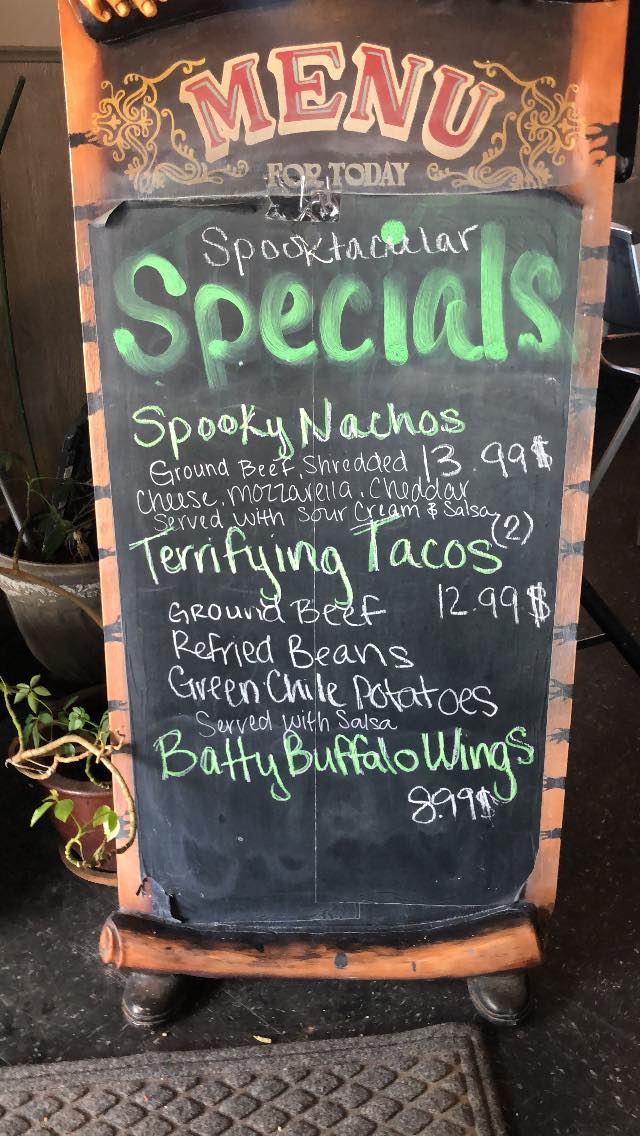 MENU
FOR TODAY
Spooktacular
Specials
Spooky Nachos
Ground Beef, Shredded 13.99$
Cheese, Mozzarella, Cheddar
Served with Sour Cream & Salsa
Terrifying Tacos (2)
Ground Beef 12.99$
Refried Beans
Green Chile Potatoes
Served with Salsa
Batty Buffalo Wings
8.99$